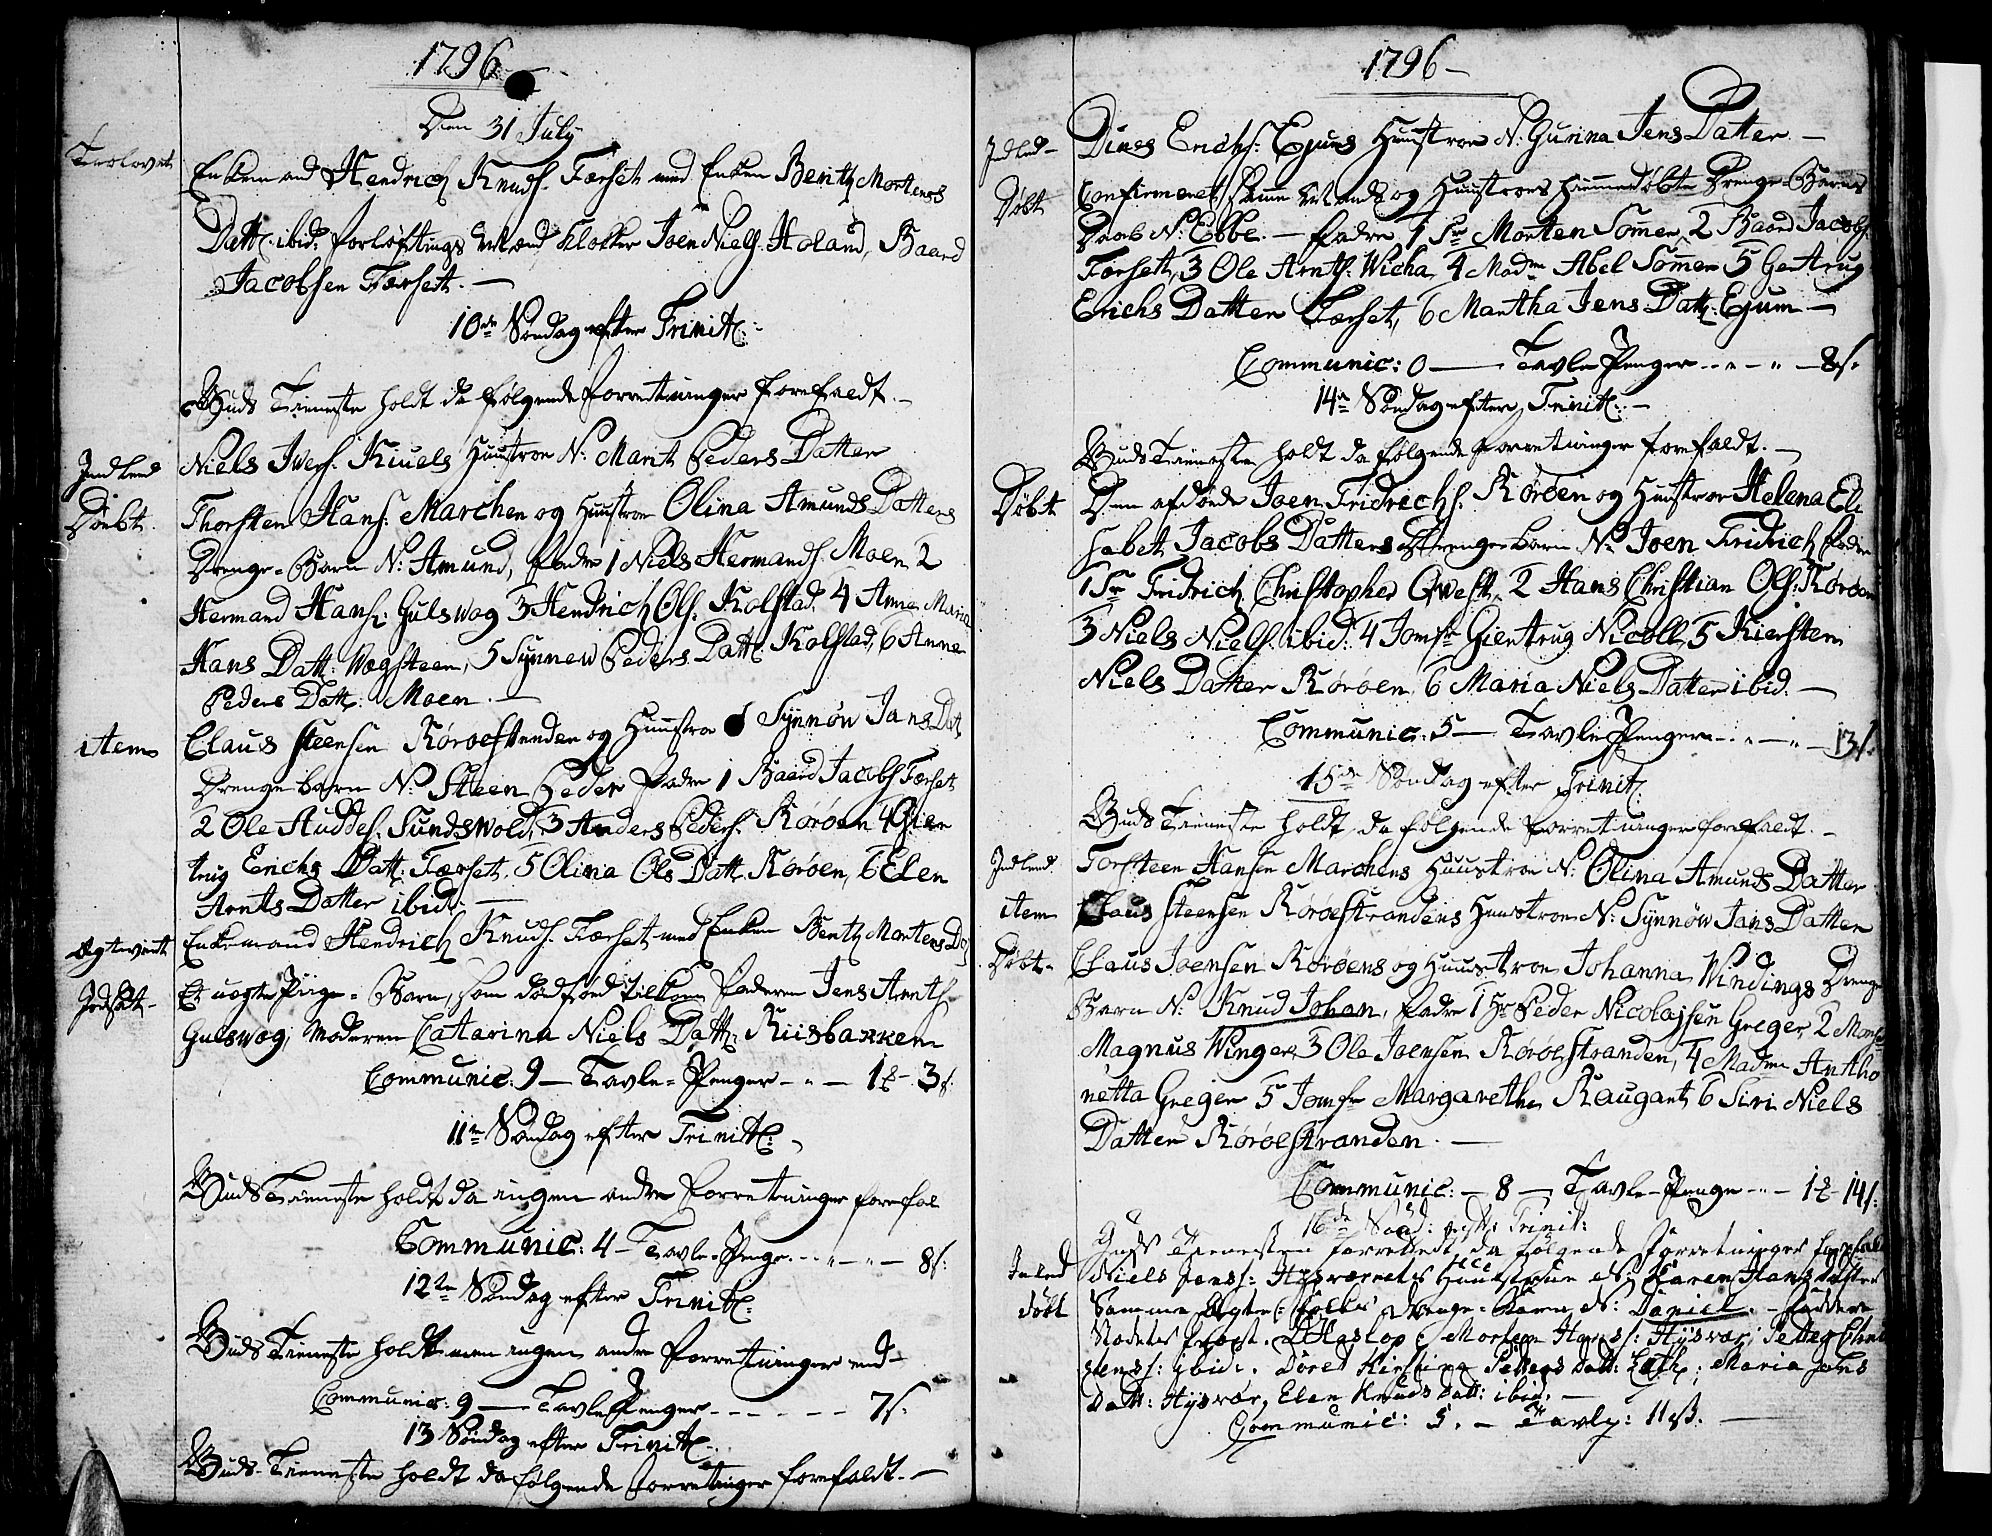 1796
Den 31 July
Trolovet
Enkemand Hendrich Knuds. Forset med Enken Berith Mortens
Datt: ibid: forløftnings Mænd Klokker Joen Niels. Holand, Baard
Jacobsen Forset. —
10de Søndag efter Trinit:
Guds Tieneste holdt da følgende Forretninger forefaldt. —
Indled
Niels Iwers. Kiuels Huustroe N: Marit Peders Datter
Døbt.
Thorsten Hans: Marchen og Huustroe Olina Amunds Datters
Drenge-Barn N: Amund, Fadre 1 Niels Hermands. Moen, 2
Hermand Hans: Gulswog 3 Hendrich Ols. Kolstad, 4 Anne Maria
Hans Datt: Wegsteen, 5 Synnew Peders Datt: Kolstad, 6 Anne
Peders Datt: Moen. —
item
Claus Steensen Rørøestranden og Huustroe Synnöw Jans Dat
Drengebarn N: Steen Peder Fadre 1 Baard Jacobs Forset
2 Ole Auddes. Sundswold, 3 Anders Peders. Rørøen 4 Gier
trug Erichs Datt: Forset, 5 Olina Ols Datt: Rørøen, 6 Elen
Arnts Datter ibid. —
Ægteviet
Enkemand Hendrich Knuds. Forset med Enken Berith Mortens D
Jordsat
Et uægte Pige-Barn, som dødfød tilkom Faderen Jens Arnts
Gulswog, Moderen Catarina Niels Datt: Kiisbakken
Communic: 9 — Tavle-Penger — " — 1 — 3 s.
11te Søndag efter Trinit:
Guds Tieneste holdt da ingen andre Forretninger forefal
Communic: 4 — Tavle-Penge — " — " — 8 s:
12te Søndag efter Trinit:
Guds Tieneste holdt men ingen andre Forretninger end
Communic: 9 — Tavle Penger — — — 7 s.
13 Søndag efter Trinit:
Guds Tieneste holdt da følgende Forretninger forefaldt. —
1796 —
Indled —
Dines Erichs: Ejums Huustroe N: Gurina Jens Datter —
Døbt
Confirmeret samme Mands og Huustroes hiemmedøbte Drenge-Barns
Daab N: Ebbe. — Fadre 1 Sr Morten Somer, 2 Baard Jacobs.
Forset, 3 Ole Arnts: Wicha, 4 Madme Abel Sommer 5 Gertrug
Erichs Datter Forset, 6 Martha Jens Datt: Ejum —
Communic: 0 — Tavle Penger — " — " — 8 s.
14de Søndag efter Trinit: —
Guds Tieneste holdt da følgende Forretninger forefaldt. —
Døbt
Den afdøde Joen Fridrechs. Rørøen og Huustroe Helena Eli
sabet Jacobs Datters Drengebarn N: Joen Fridrich Fadre
1 Sr Fridrich Christopher Qwest, 2 Hans Christian Ols: Rørøen
3 Niels Niels. ibid: 4 Jomfr Giertrug Nicoll, 5 Kiersten
Niels Datter Rørøen, 6 Maria Niels Datter ibid. —
Communic: 5 — Tavle Penger — " — " — 13 s.
15de Søndag efter Trinit
Guds Tieneste holdt, da følgende Forretninger forefaldt. —
Indled.
Torsteen Hansen Marchens Huustroe N: Olina Amunds Datter
item
Claus Steensen Rørøestrandens Huustroe N: Synnöw Jans Datter
Døbt —
Claus Joensen Rørøens og Huustroe Johanna Windings Drenge
Barn N: Knud Johan, Fadre 1 Hr Peder Nicolajsen Greger, 2 Monsr
Magnus Winger, 3 Ole Joensen Rørøestranden, 4 Madme Antho
netta Greger 5 Jomfr Margarethe Raugant, 6 Siri Niels
Datter Rørøestranden. —
Communic: — 8 — Tavle-Penge — " — 1 — 14 s:
16de Sønd: eft: Trinit:
Guds Tienesten forrettedt, da følgende Forretninger forefaldt
Inled
Niels Jenss: Husværnets Huustrue N: Karen Hans datter
døbt
Samme Ægte-folkes Drenge-Barn, N: Daniel. — Faddere
Stedets Præst. D Hastop; Morten Hanss: Hysvær; Petter Chri
stenss: ibid:. Doret Kirstina Petters datt: ; Maria Jens
Datt: Hysvær, Elen Knudsdatt: ibid. —
Communic: 5. — Tavlp: 11 s. —